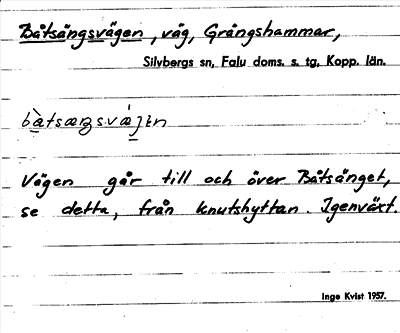 Båtsängsvägen, väg, Grängshammar,
Silvbergs sn, Falu doms. s. tg, Kopp. län.
Vägen går till och över Båtsänget,
se detta, från Knutshyttan. Igenväxt.
Inge Kvist 1957.